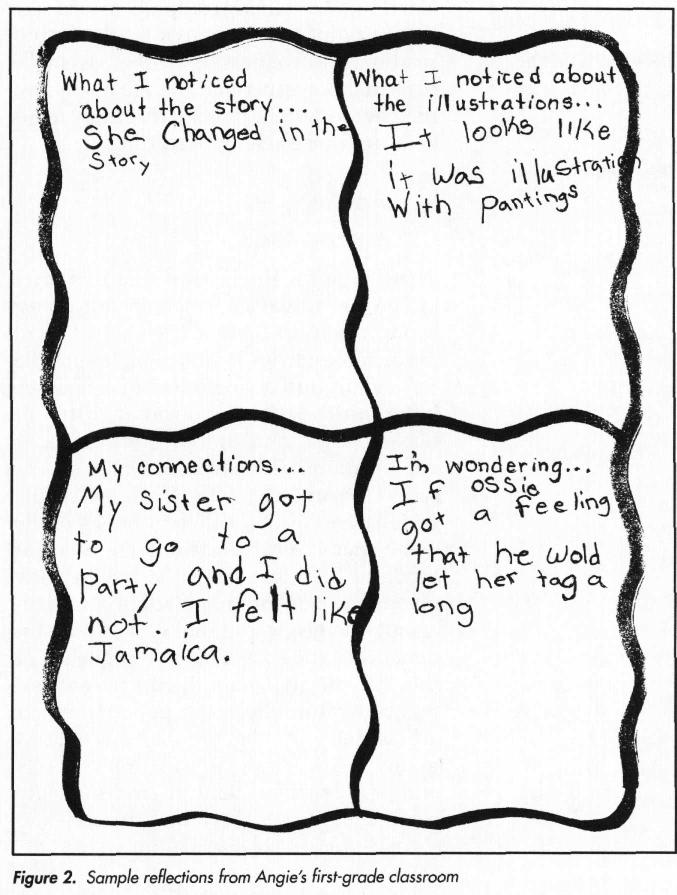 What I noticed
about the story...
She Changed in the
Story
What I noticed about
the illustrations...
It looks like
it was illustration
With pantings
My connections...
My Sister got
to go to a
party and I did
not. I felt like
Jamaica.
I'm wondering...
If ossie
got a feeling
that he wold
let her tag a
long
Figure 2. Sample reflections from Angie's first-grade classroom